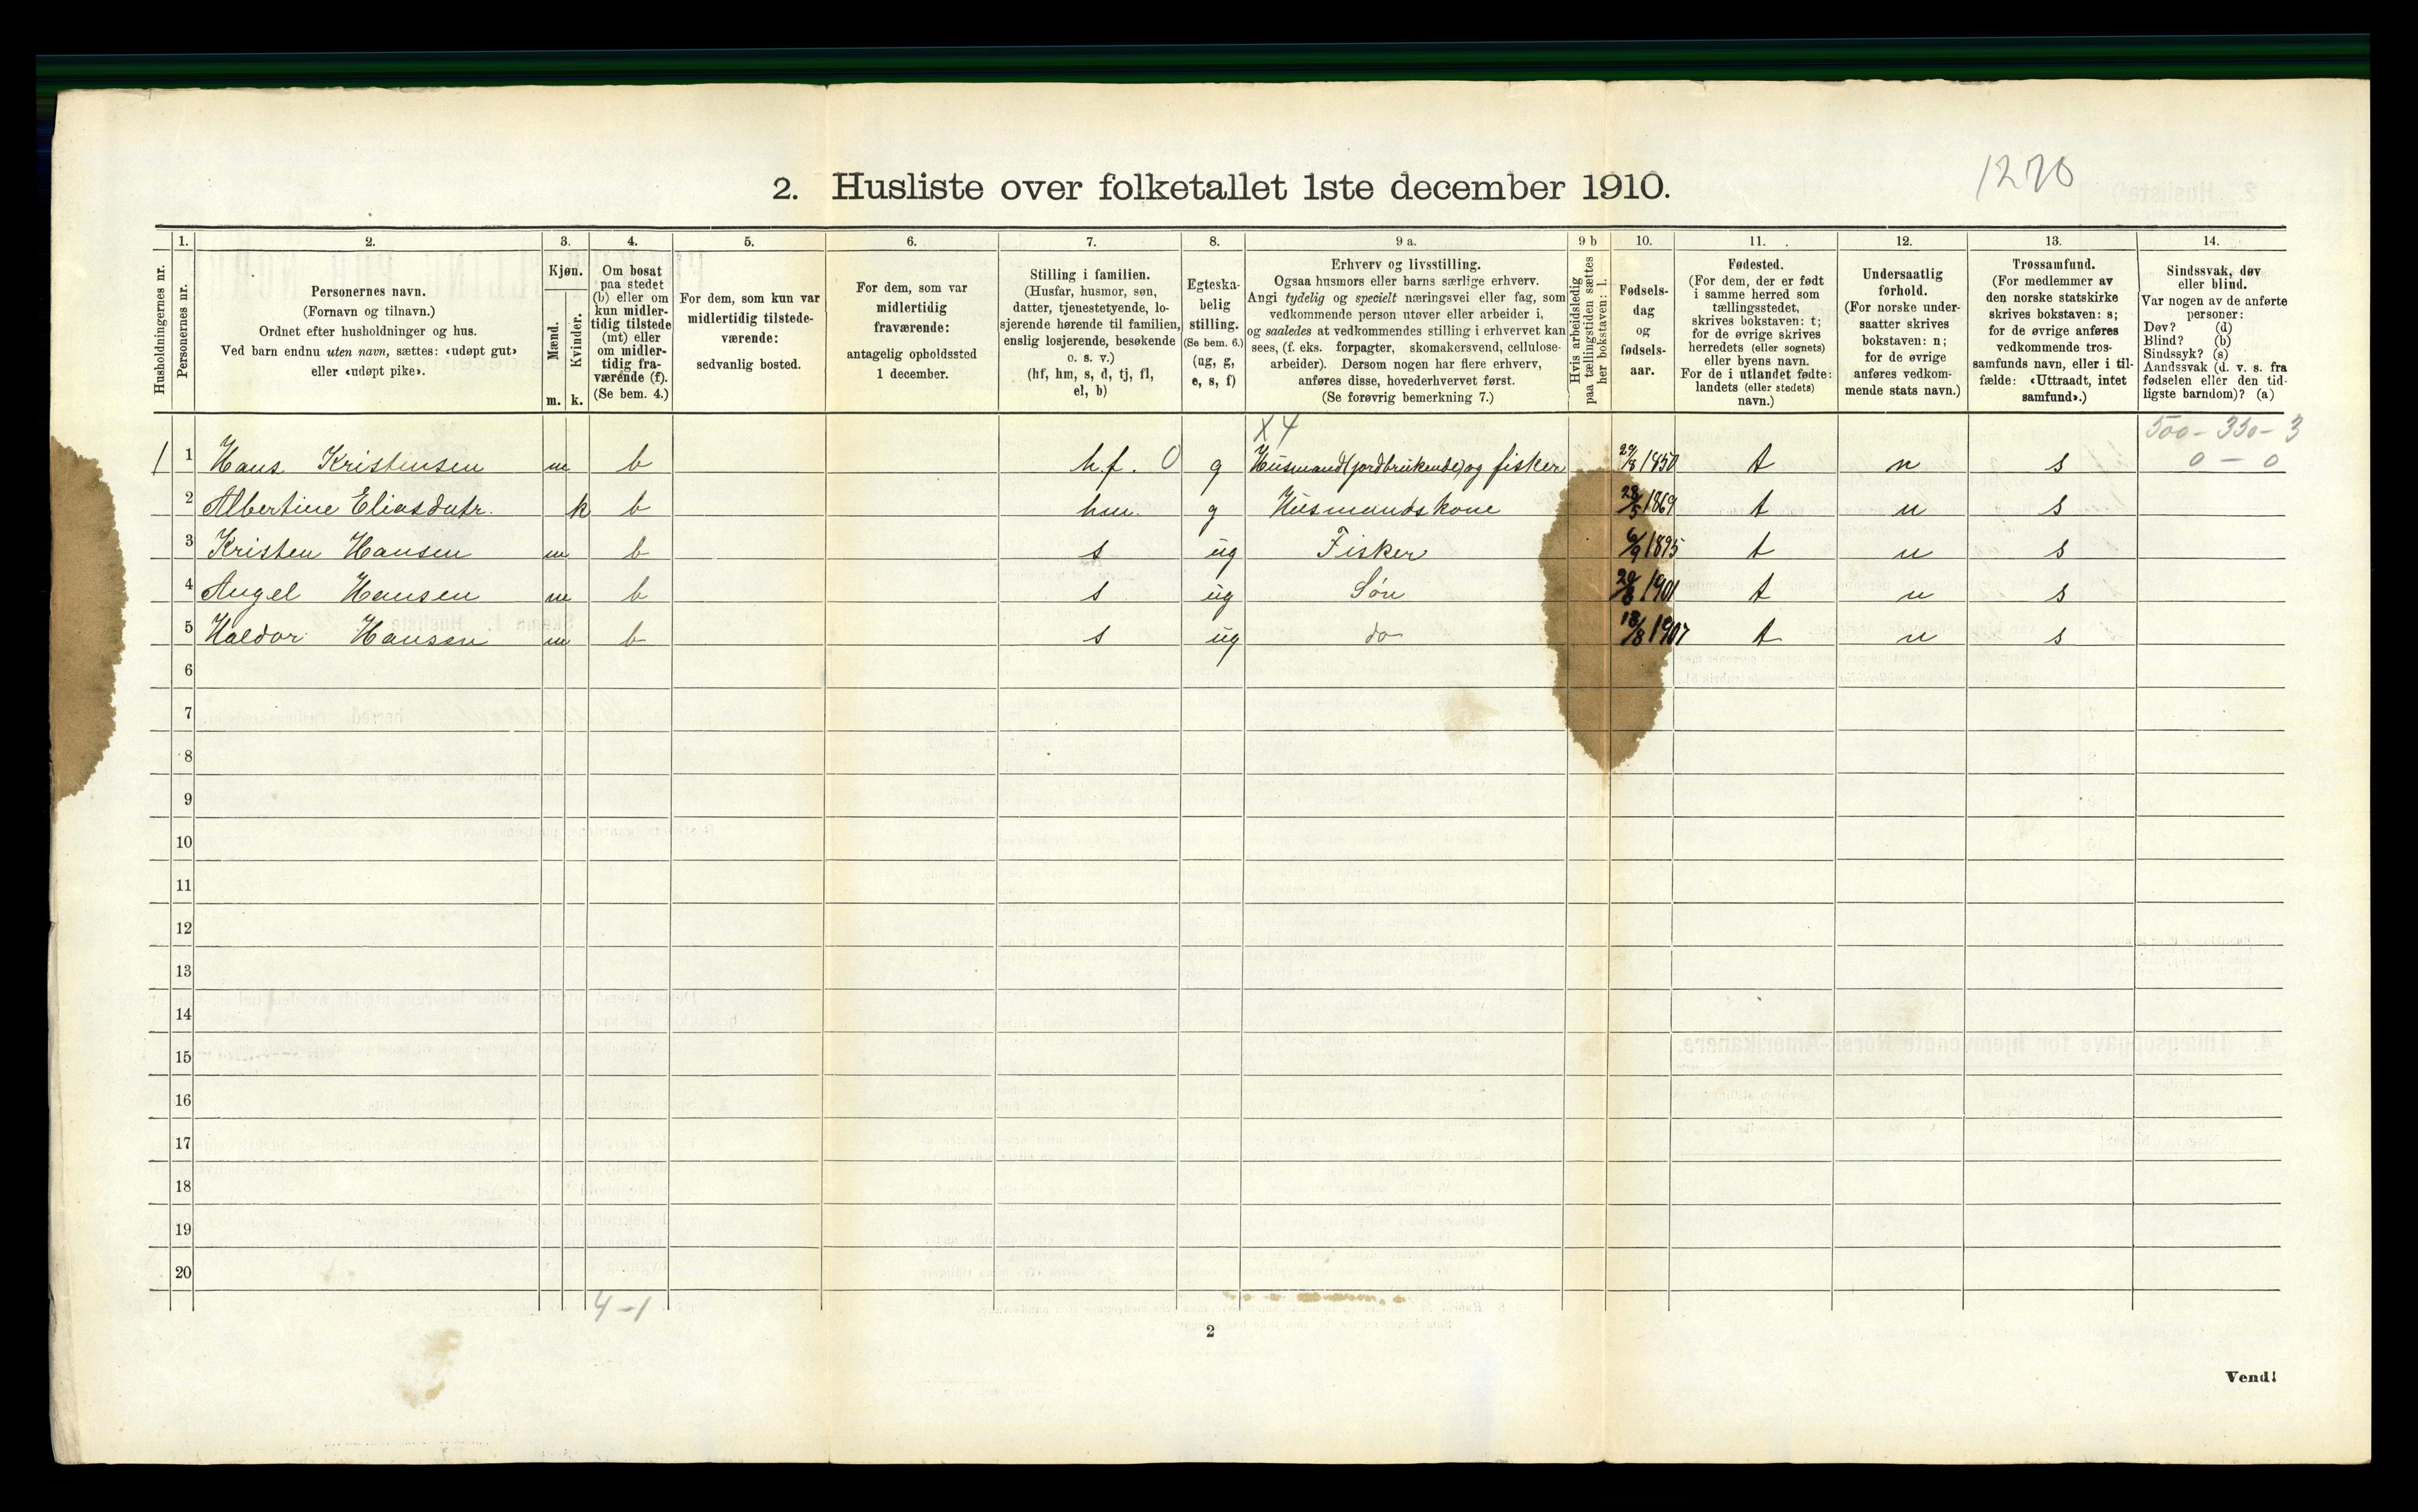 1270
2. Husliste over folketallet 1ste december 1910.
Husholdningernes nr.
1.
Personernes nr.
2.
Personernes navn.
(Fornavn og tilnavn.)
Ordnet efter husholdninger og hus.
Ved barn endnu uten navn, sættes: «udøpt gut»
eller «udøpt pike».
3.
Kjøn.
Mænd.
Kvinder.
m. k.
4.
Om bosat
paa stedet
(b) eller om
kun midler-
tidig tilstede
(mt) eller
om midler-
tidig fra-
værende (f).
(Se bem. 4.)
5.
For dem, som kun var
midlertidig tilstede-
værende:
sedvanlig bosted.
6.
For dem, som var
midlertidig
fraværende:
antagelig opholdssted
1 december.
7.
Stilling i familien.
(Husfar, husmor, søn,
datter, tjenestetyende, lo-
sjerende hørende til familien,
enslig losjerende, besøkende
o. s. v.)
(hf, hm, s, d, tj, fl,
el, b)
8.
Egteska-
belig
stilling.
(Se bem. 6.)
(ug, g,
e, s, f)
9 a.
Erhverv og livsstilling.
Ogsaa husmors eller barns særlige erhverv.
Angi tydelig og specielt næringsvei eller fag, som
vedkommende person utøver eller arbeider i,
og saaledes at vedkommendes stilling i erhvervet kan
sees, (f. eks. forpagter, skomakersvend, cellulose-
arbeider). Dersom nogen har flere erhverv,
anføres disse, hovederhvervet først.
(Se forøvrig bemerkning 7.)
9 b
Hvis arbeidsledig
paa tællingstiden sættes
her bokstaven: l.
10.
Fødsels-
dag
og
fødsels-
aar.
11.
Fødested.
(For dem, der er født
i samme herred som
tællingsstedet,
skrives bokstaven: t;
for de øvrige skrives
herredets (eller sognets)
eller byens navn.
For de i utlandet fødte:
landets (eller stedets)
navn.)
12.
Undersaatlig
forhold.
(For norske under-
saatter skrives
bokstaven: n;
for de øvrige
anføres vedkom-
mende stats navn.)
13.
Trossamfund.
(For medlemmer av
den norske statskirke
skrives bokstaven: s;
for de øvrige anføres
vedkommende tros-
samfunds navn, eller i til-
fælde: «Uttraadt, intet
samfund».)
14.
Sindssvak, døv
eller blind.
Var nogen av de anførte
personer:
Døv? (d)
Blind? (b)
Sindssyk? (s)
Aandssvak (d. v. s. fra
fødselen eller den tid-
ligste barndom)? (a)
X4
500 - 330 - 3
0 - 0
1 1 Hans Kristensen m b h.f. 0 g Husmand (jordbrukende) og fisker 1850 t n s
2 Albertine Eliasdatr. k b hm. g Husmandskone 28/5 1869 t n s
3 Kristen Hansen m b s ug Fisker 6/9 1895 t n s
4 Angel Hansen m b s ug Søn 1901 t n s
5 Haldor Hansen m b s ug do 18/8 1907 t n s
6
7
8
9
10
11
12
13
14
15
16
17
18
19
20
4 - 1
2
Vend!